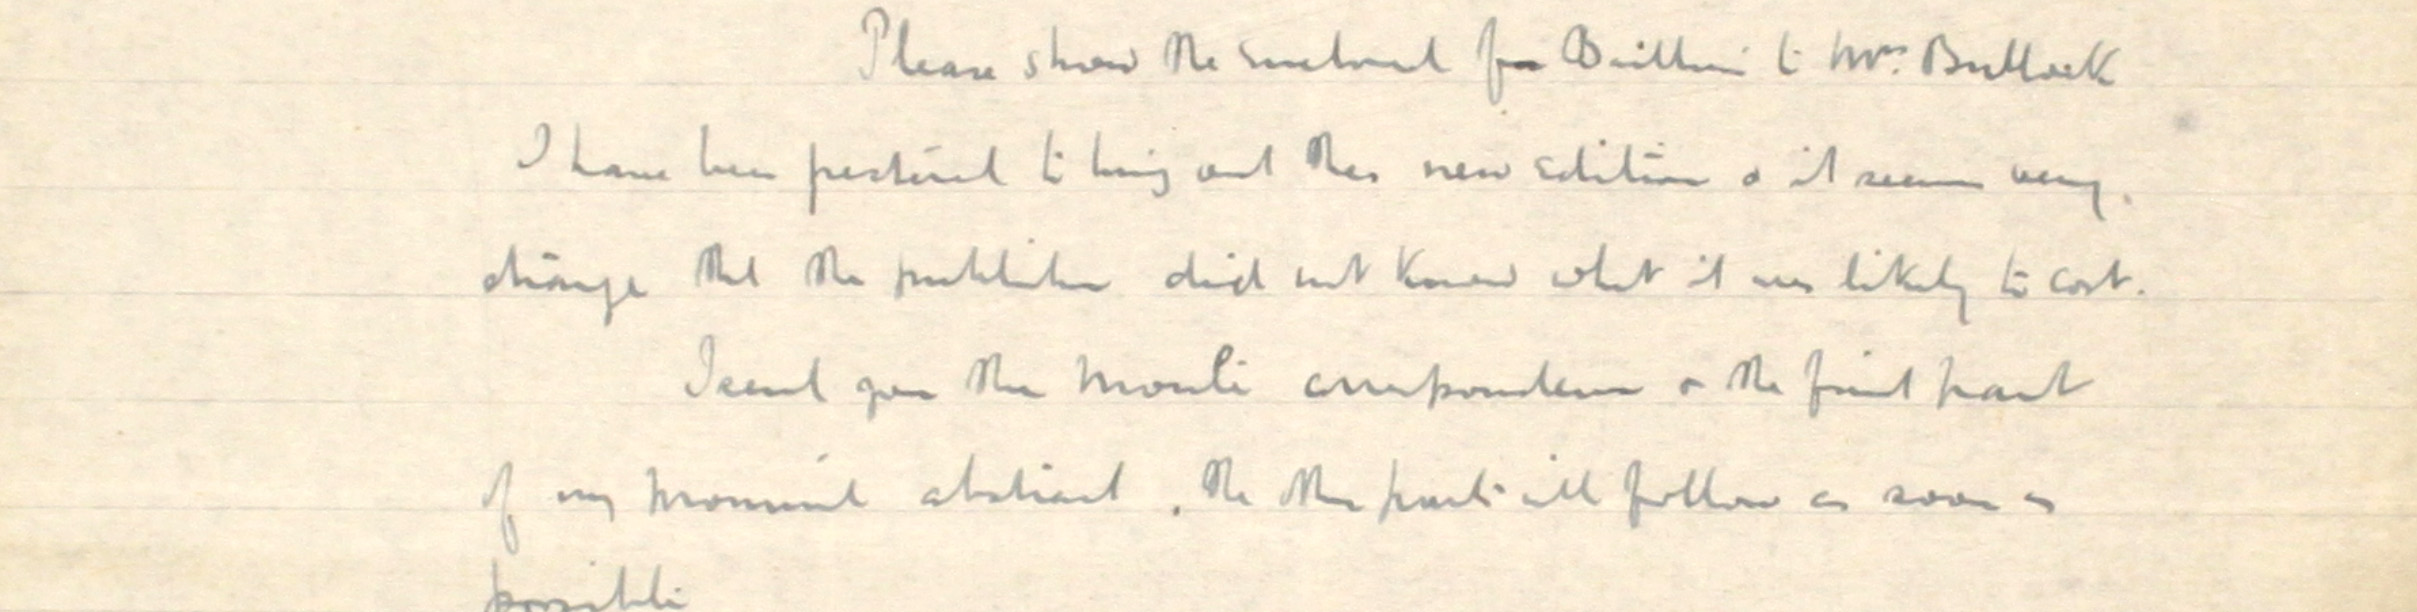 Please show the enclosed from Baillière to Mrs. Bullock
I have been pestered to bring out this new edition & it seems very
strange that the publisher did not know what it was likely to cost.
I send you the correspondence & the first part
of my abstract, the other parts will follow as soon as
possible